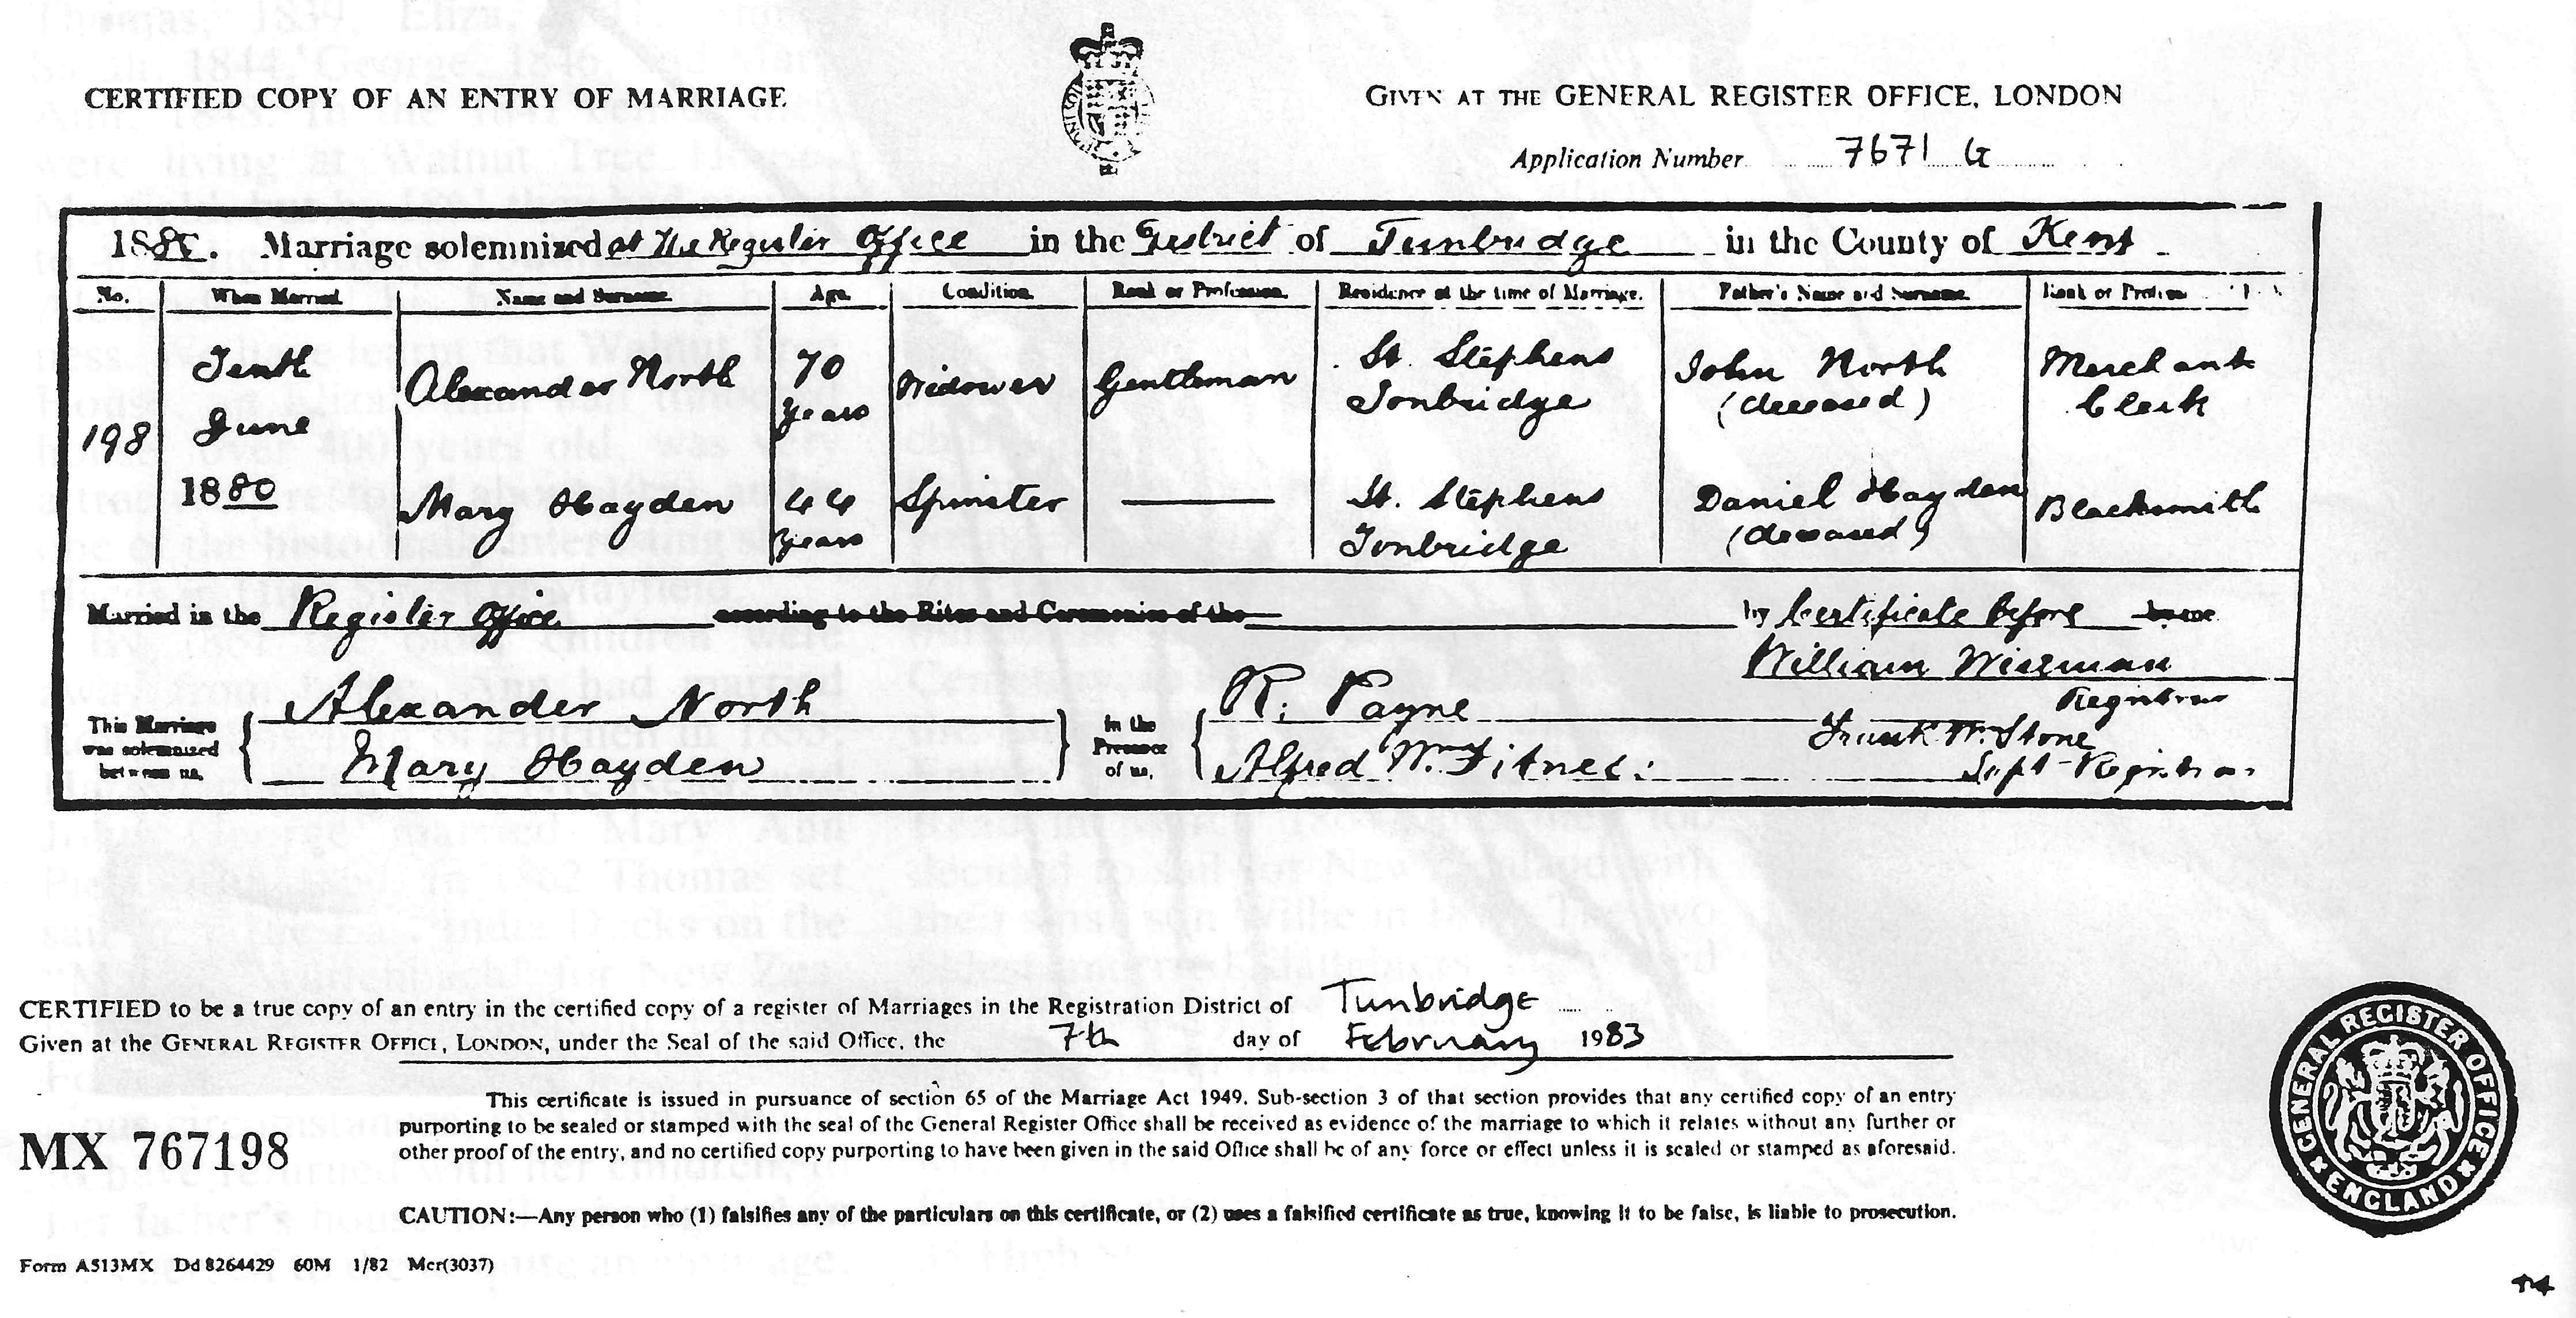 CERTIFIED COPY OF AN ENTRY OF MARRIAGE
GIVEN AT THE GENERAL REGISTER OFFICE, LONDON
Application Number 7671 G
1880. Marriage solemnized at The Register Office in the District of Tunbridge in the County of Kent
No. When Married Name and Surname Age Condition Rank or Profession Residence at the time of Marriage. Father's Name and Surname Rank or Profession
198 Tenth June 1880 Alexander North 70 years Widower Gentleman St. Stephens Tonbridge John North (deceased) Merchant Clerk
Mary Hayden 44 years Spinster St. Stephens Tonbridge Daniel Hayden (deceased) Blacksmith
Married in the Register Office according to the Rites and Ceremonies of the by Certificate before
William Wiseman
Registrar
This Marriage was solemnized between us, Alexander North Mary Hayden
In the Presence of us, R. Payne Alfred Wm.
Frank W. Stone
Supt Registrar
CERTIFIED to be a true copy of an entry in the certified copy of a register of Marriages in the Registration District of Tunbridge
Given at the GENERAL REGISTER OFFICE, LONDON, under the Seal of the said Office, the 7th day of February 1983
This certificate is issued in pursuance of section 65 of the Marriage Act 1949. Sub-section 3 of that section provides that any certified copy of an entry
purporting to be sealed or stamped with the seal of the General Register Office shall be received as evidence of the marriage to which it relates without any further or
other proof of the entry, and no certified copy purporting to have been given in the said Office shall be of any force or effect unless it is sealed or stamped as aforesaid.
MX 767198
CAUTION:—Any person who (1) falsifies any of the particulars on this certificate, or (2) uses a falsified certificate as true, knowing it to be false, is liable to prosecution.
Form A513MX Dd 8264429 60M 1/82 Mcr(3037)
GENERAL REGISTER OFFICE
ENGLAND